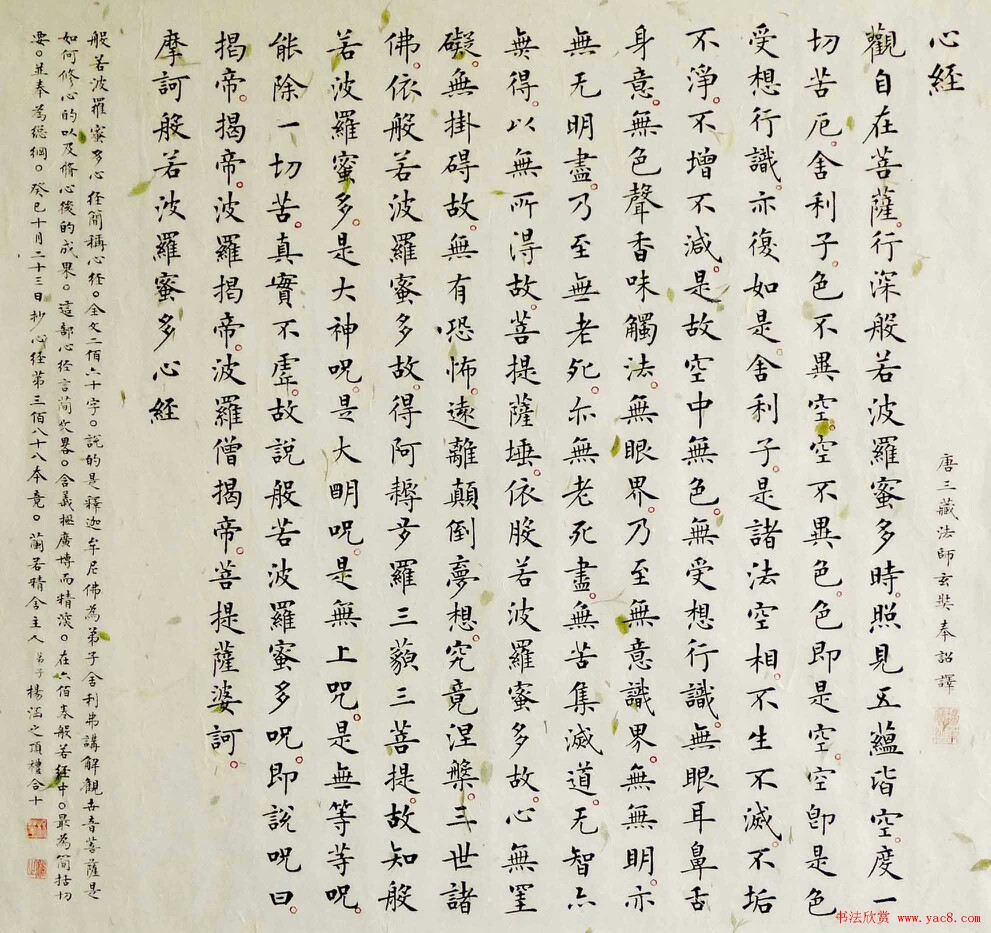 心經
唐三藏法師玄奘奉詔譯
觀自在菩薩。行深般若波羅蜜多時。照見五蘊皆空。度一
切苦厄。舍利子。色不異空。空不異色。色即是空。空即是色
受想行識。亦復如是。舍利子。是諸法空相。不生不滅。不垢
不淨。不增不減。是故空中無色。無受想行識。無眼耳鼻舌
身意。無色聲香味觸法。無眼界。乃至無意識界。無無明。亦
無无明盡。乃至無老死。亦無老死盡。無苦集滅道。无智亦
無得。以無所得故。菩提薩埵。依般若波羅蜜多故。心無罣
礙。無掛碍故。無有恐怖。遠離顛倒夢想。究竟涅槃。三世諸
佛。依般若波羅蜜多故。得阿耨多羅三藐三菩提。故知般
若波羅蜜多。是大神呪。是大明呪。是無上呪。是無等等呪。
能除一切苦。真實不虛。故說般若波羅蜜多呪。即說呪曰。
揭帝。揭帝。波羅揭帝。波羅僧揭帝。菩提薩婆訶。
摩訶般若波羅蜜多心經
般若波羅蜜多心经簡稱心经。全文二佰六十字。說的是釋迦牟尼佛為弟子舍利弗講解觀世音菩薩是
如何修心的以及脩心後的成果。這部心经言簡畧。含義極廣博而精深。在六佰卷般若经中。最為簡括切
要。並奉為總綱。癸巳十月二十三日抄心经第三佰八十八本竟。蘭若精舍主人弟子楊之頂禮合十
书法欣赏 www.yac8.com